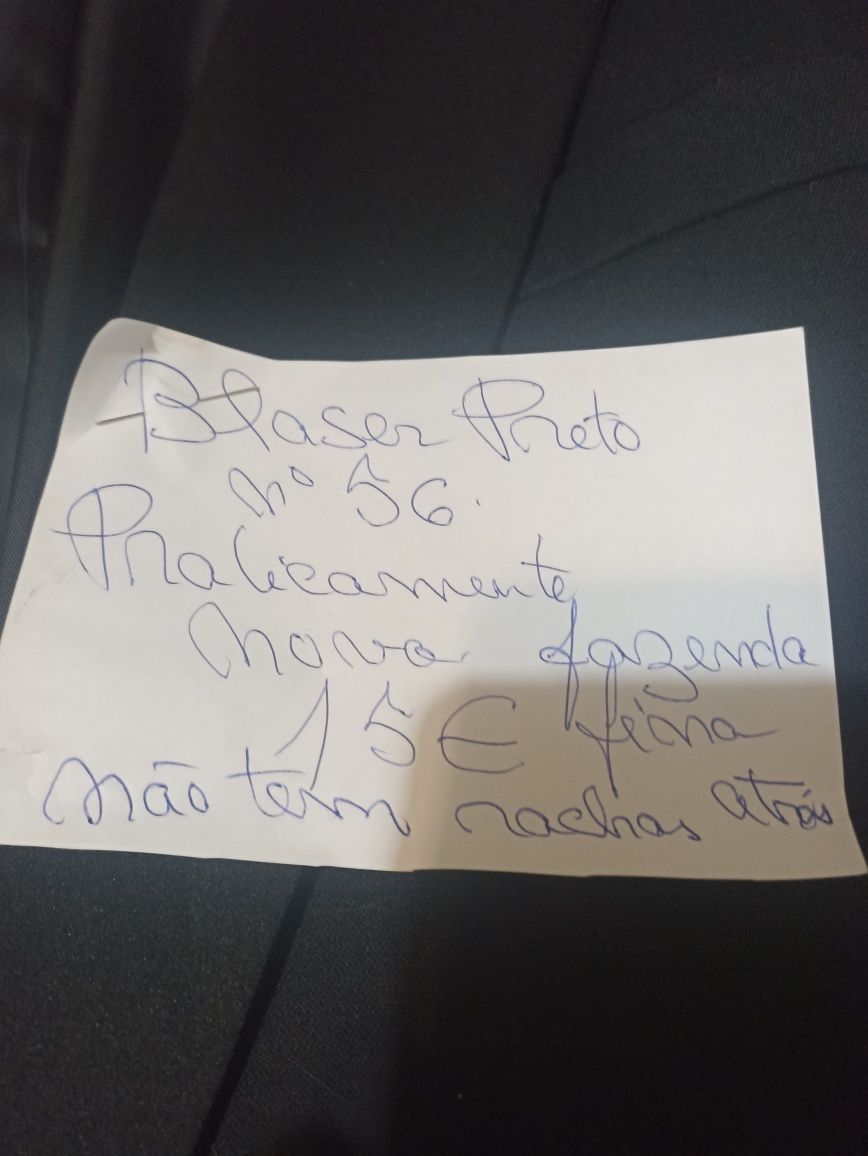 Blaser Preto
nº 56.
Praticamente
nova fazenda
15€ fina
não têm rachas atrás